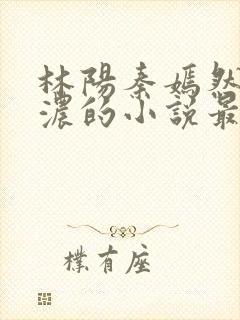 林陽秦嫣然
濃的小說最
樸有座